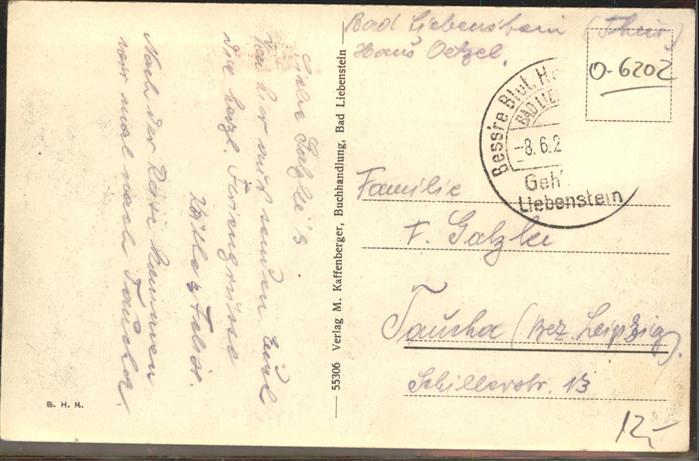 Bad Liebenstein (Thür.)
Haus Oetzel.
O-6202
Bess're Blut, He
BAD LIE
-8.6.2
Geh'
Liebenstein
Familie
F. Galzke
Taucha (Bez. Leipzig).
Schillerstr. 13
12,-
55306 Verlag M. Kaffenberger, Buchhandlung, Bad Liebenstein
Liebe Galzke's.
Von hier aus senden Euch
die herzl. Feriengrüsse
Nach der Reise kommen
wir mal nach Taucha.
B. H. K.